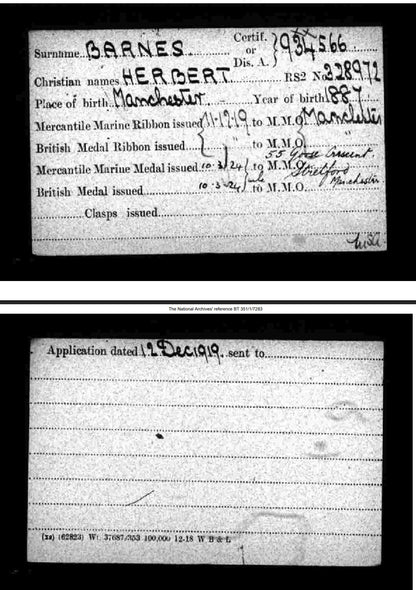 Surname BARNES Certif. or Dis. A. } 934566
Christian names HERBERT RS2 No 328972
Place of birth Manchester Year of birth 1887
Mercantile Marine Ribbon issued 11-12-19 to M.M.O. Manchester
British Medal Ribbon issued to M.M.O. "
55 Crescent
Mercantile Marine Medal issued 10.3.24 to M.M.O. Stretford
British Medal issued 10.3.24 to M.M.O. Manchester
Clasps issued
The National Archives' reference BT 351/1/7283
Application dated 12 Dec 1919. sent to
(xs) (62823) Wt. 37687/353 100,000 12-18 W B & L